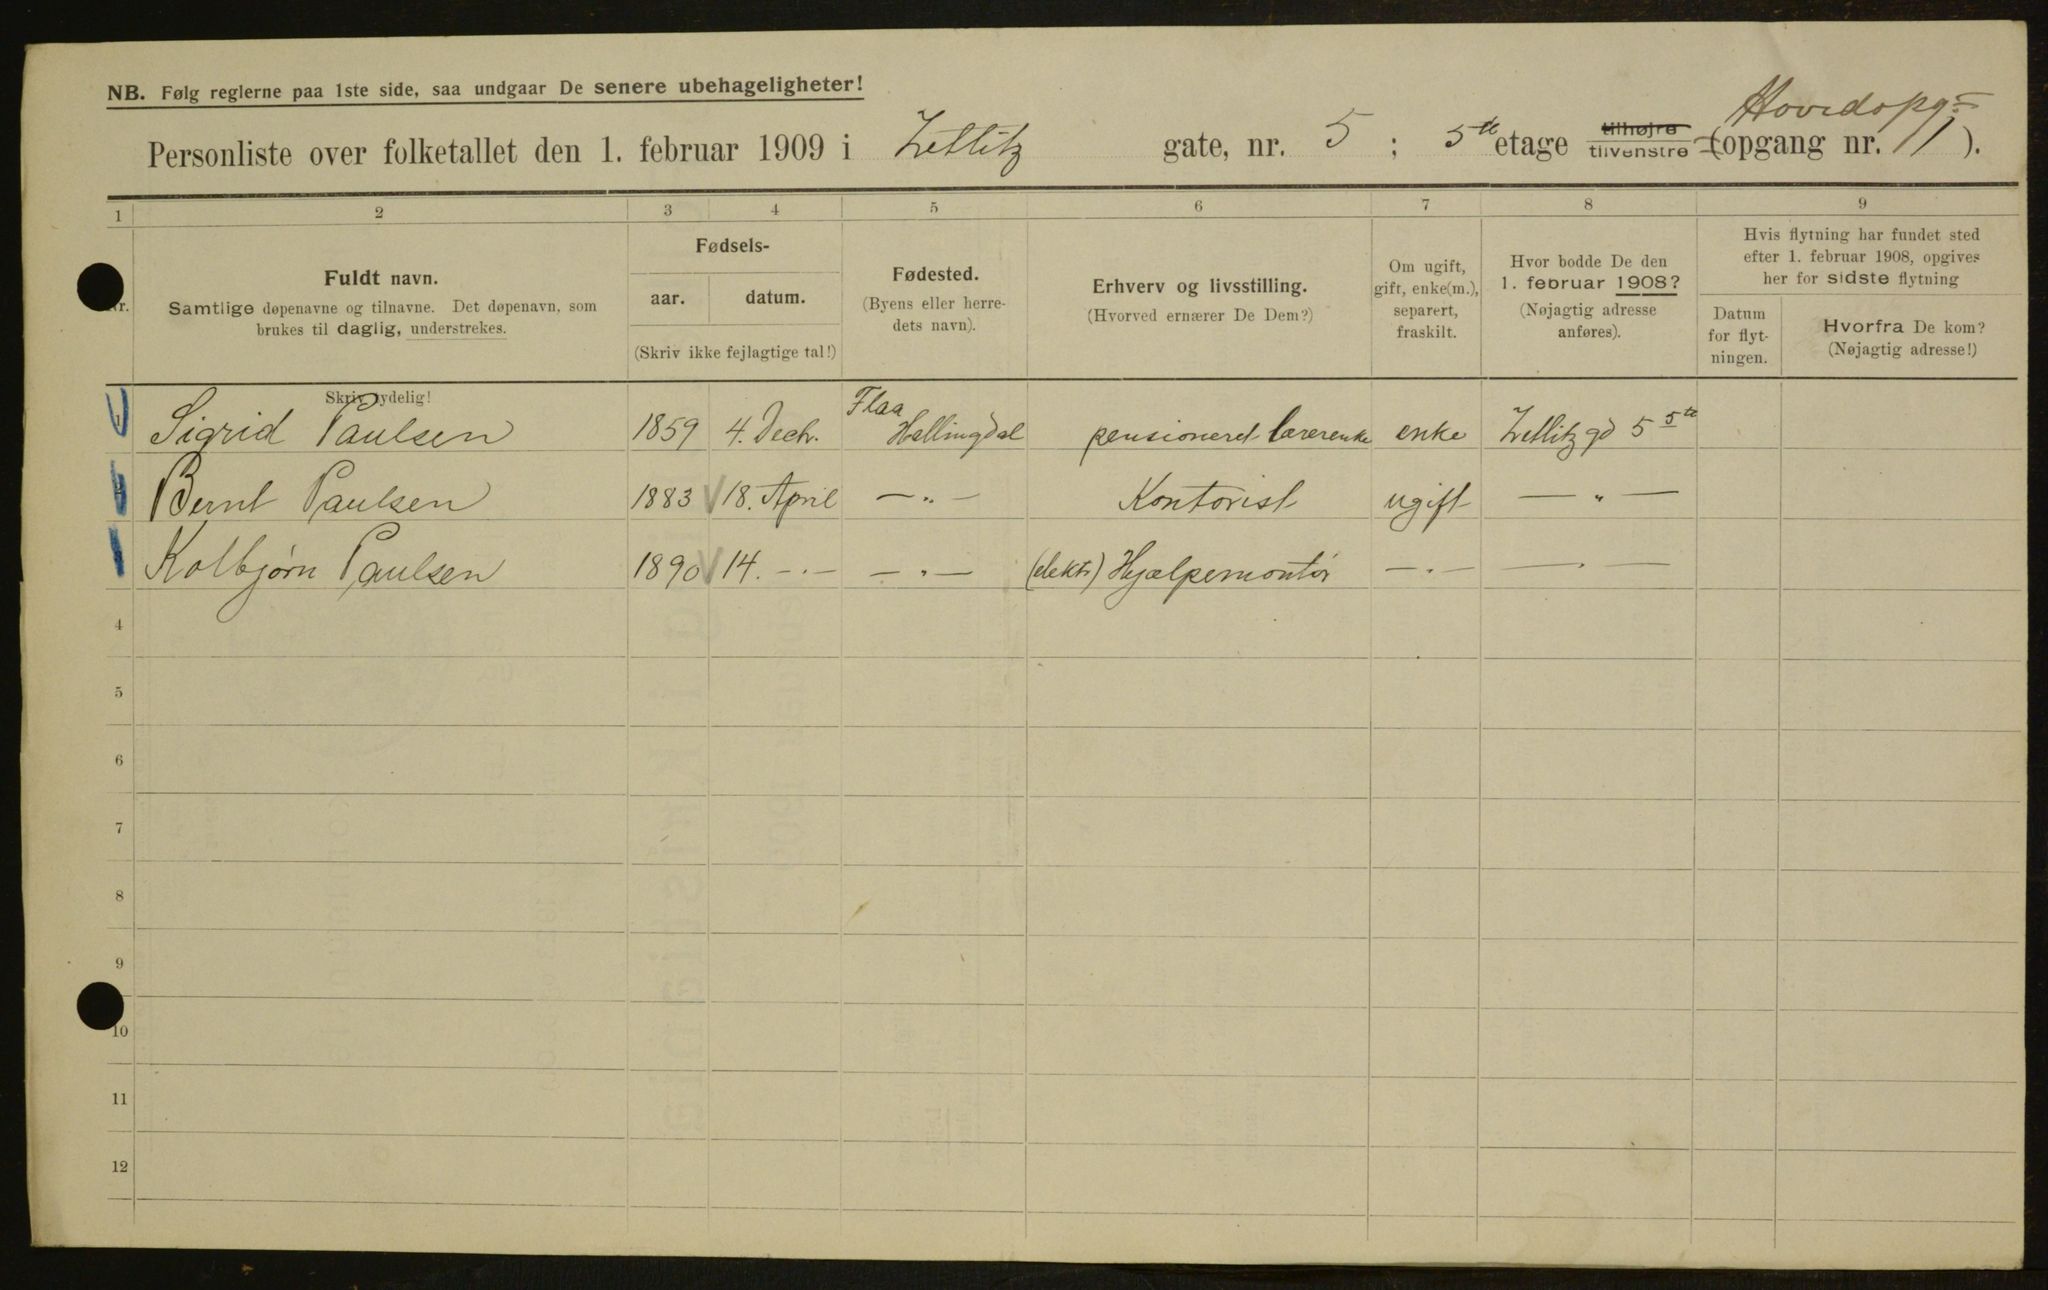 NB. Følg reglerne paa 1ste side, saa undgaar De senere ubehageligheter!
Hovedopg:
Personliste over folketallet den 1. februar 1909 i Zetlitz gate, nr. 5 ; 5te etage tilhøjre tilvenstre (opgang nr. 1 ).
1 2 3 4 5 6 7 8 9
Nr.
Fuldt navn.
Samtlige døpenavne og tilnavne. Det døpenavn, som
brukes til daglig, understrekes.
Skriv tydelig!
Fødsels-
aar. datum.
(Skriv ikke fejlagtige tal!)
Fødested.
(Byens eller herre-
dets navn).
Erhverv og livsstilling.
(Hvorved ernærer De Dem?)
Om ugift,
gift, enke(m.),
separert,
fraskilt.
Hvor bodde De den
1. februar 1908?
(Nøjagtig adresse
anføres).
Hvis flytning har fundet sted
efter 1. februar 1908, opgives
her for sidste flytning
Datum
for flyt-
ningen.
Hvorfra De kom?
(Nøjagtig adresse!)
1 Sigrid Paulsen 1859 4. Decbr. Flaa Hallingdal pensioneret lærerenke enke Zetlitz gd 5 5te
2 Bernt Paulsen 1883 18. April — „ — Kontorist ugift — „ —
3 Kolbjørn Paulsen 1890 14. — „ — — „ — (elektr) Hjælpemontør — „ — — „ —
4
5
6
7
8
9
10
11
12